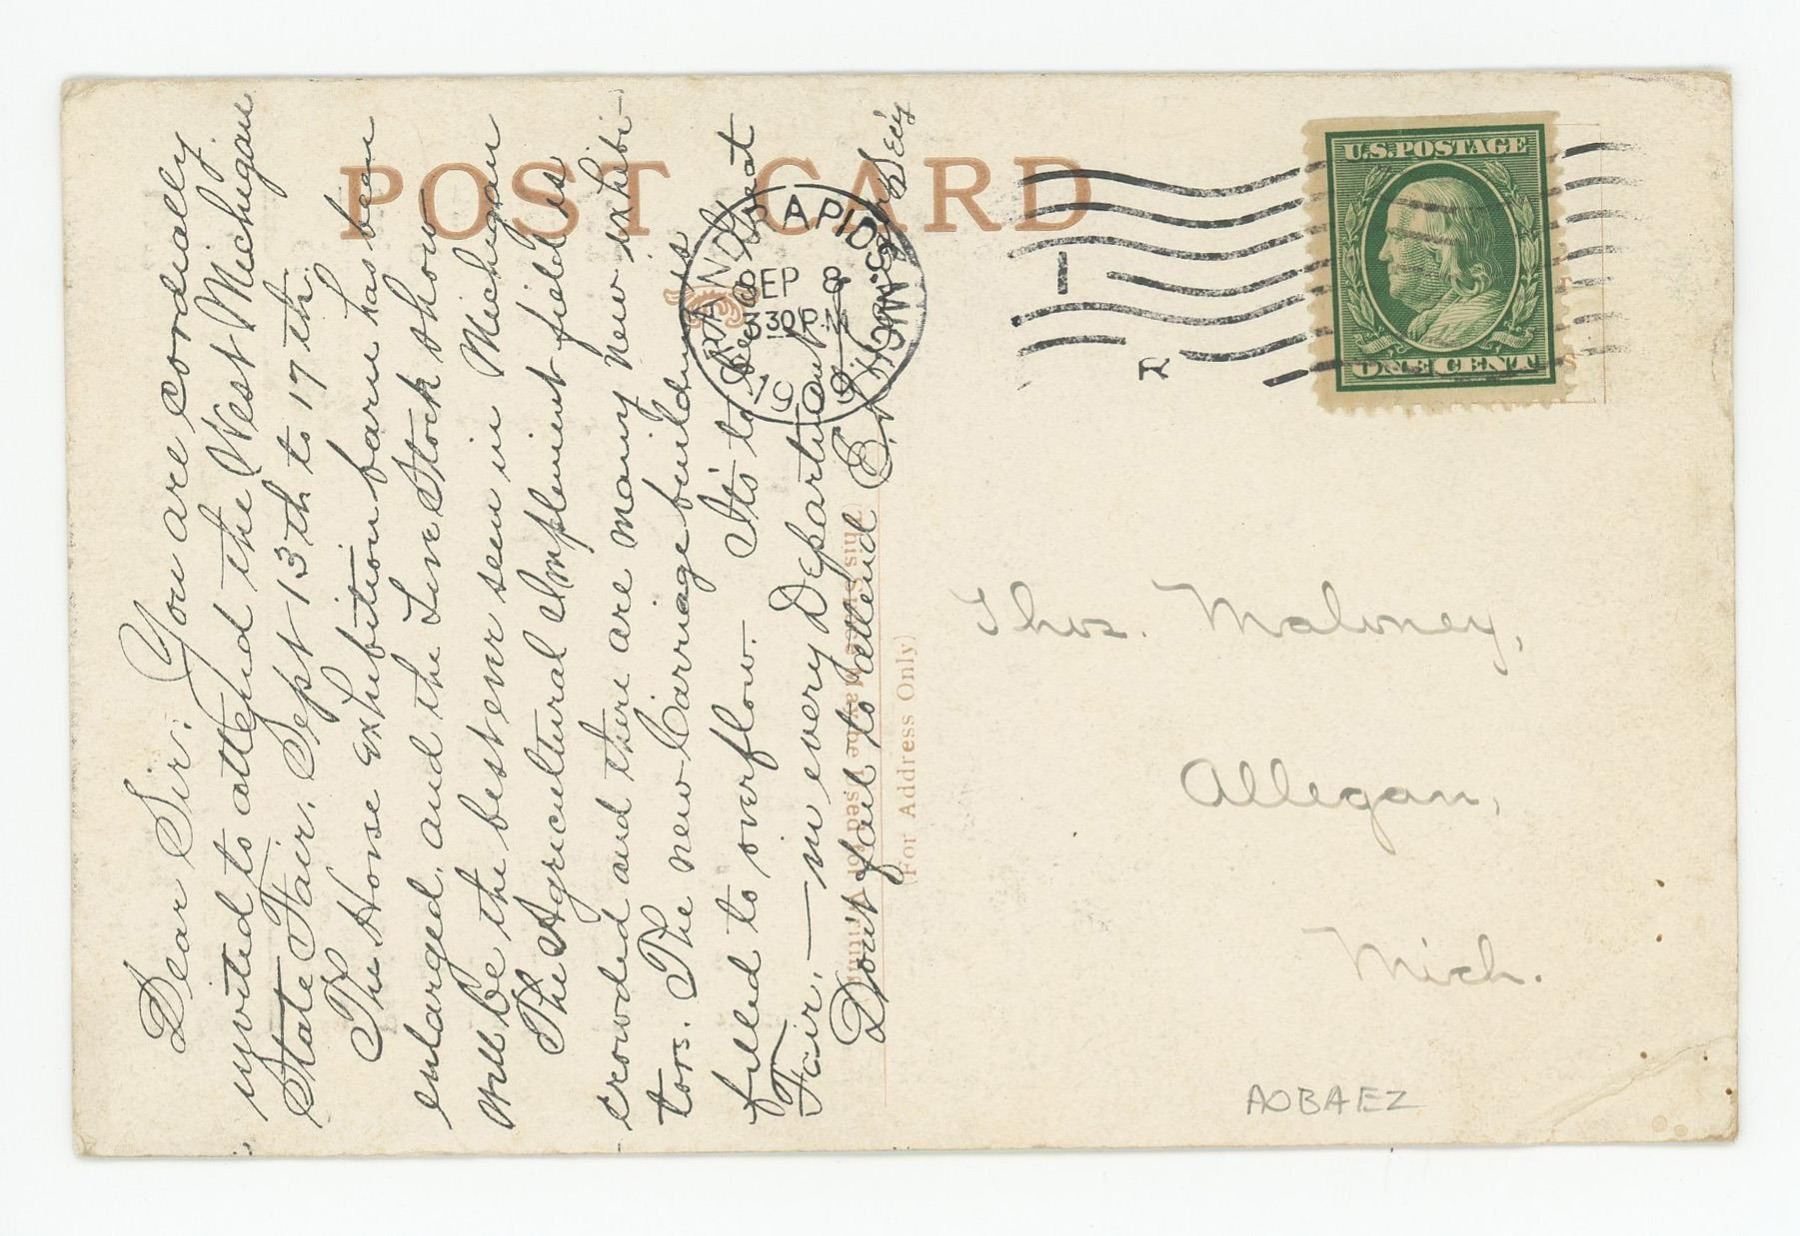 POST CARD
Dear Sir: You are cordially
invited to attend the West Michigan
State Fair, Sept 13th to 17th.
The Horse exhibition barn has been
enlarged, and the Live Stock show
will be the best ever seen in Michigan
The Agricultural Implement field is
crowded and there are many new exhibi-
tors. The new Carriage building is
filled to overflow. It's to be a Great
Fair, — in every Department
Don't fail to attend
Sec'y
(For Address Only)
GRAND RAPIDS
MICH.
SEP 8
330 PM
1909
1
U.S. POSTAGE
ONE CENT
Thos. Maloney,
Allegan,
Mich.
AOBAEZ